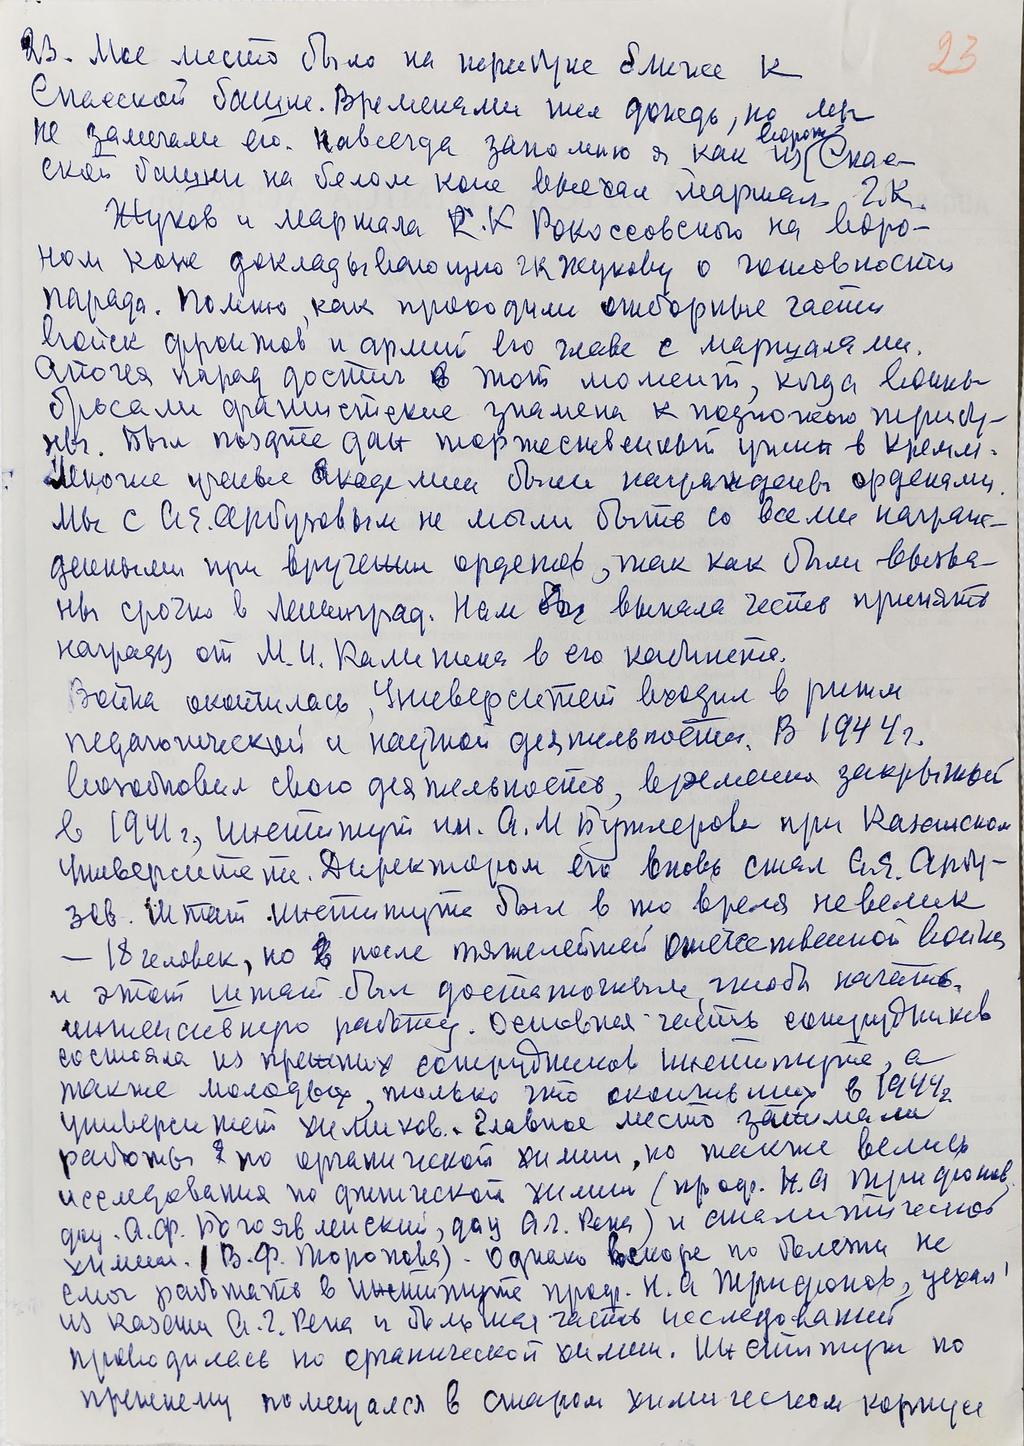 23
23. Мое место было на трибуне ближе к
Спасской башне. Временами шел дождь, но мы
не замечали его. Навсегда запомню я как из ворот Спас-
ской башни на белом коне выехал маршал Г.К.
Жуков и маршала К.К Рокоссовского на воро-
ном коне докладывающию ГК Жукову о готовности
парада. Помню, как проходили отборные части
войск фронтов и армий во главе с маршалами.
Апогея парад достиг в тот момент, когда воины
бросали фашистские знамена к подножью трибу-
ны. Был позднее дан торжественный ужин в Кремле.
Многие ученые Академии были награждены орденами.
Мы с А.Е. Арбузовым не могли быть со всеми награж-
денными при вручении орденов, так как были вызва-
ны срочно в Ленинград. Нам выпала честь принять
награду от М.И. Калинина в его кабинете.
Война окончилась, Университет входил в ритм
педагогической и научной деятельности. В 1944 г.
возобновил свою деятельность, временно закрытый
в 1941 г, Институт им. А.М Бутлерова при Казанском
университете. Директором его вновь стал А.Е. Арбу-
зов. Штат института был в то время невелик
— 18 человек, но после тяжелейшей отечественной войны
и этот штат был достаточным, чтобы начать
интенсивную работу. Основная часть сотрудников
состояла из прежних сотрудников института, а
также молодых, только что окончивших в 1944 г
университет химиков. Главное место занимали
работы по органической химии, но также велись
исследования по физической химии (проф. Н.А Трифонов,
доц. А.Ф. Богоявленский, доц А.Г. Рена) и аналитической
химии. (В.Ф. Торопова). Однако вскоре по болезни не
смог работать в Институте проф. Н.А Трифонов, уехал
из Казани А.Г. Рена и большая часть исследований
проводилась по органической химии. Институт по
прежнему помещался в старом химическом корпусе